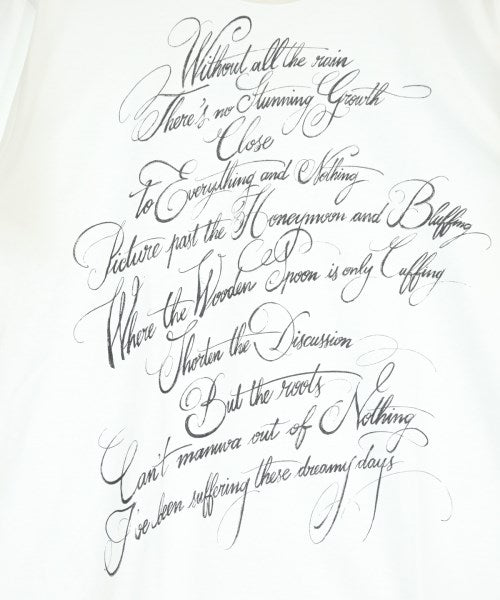 Without all the rain
There's no Stunning Growth
Close
to Everything and Nothing
Picture past the Honeymoon and Bluffing
Where the Wooden Spoon is only Cuffing
Shorten the Discussion
But the roots
Can't manuva out of Nothing
I've been suffering these dreamy days